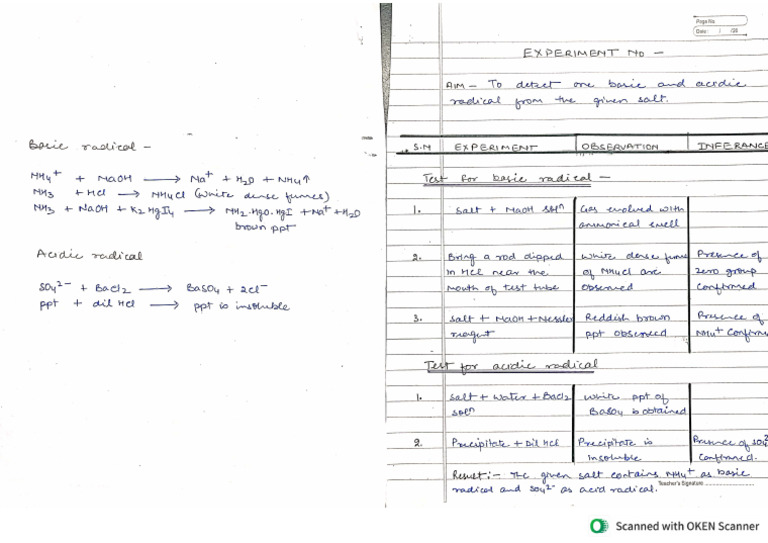 Basic radical –
NH4+ + NaOH → Na+ + H2O + NH4↑
NH3 + HCl → NH4Cl (White dense fumes)
NH3 + NaOH + K2HgI4 → NH2.HgO.HgI + Na+ + H2O
brown ppt
Acidic radical
SO4^2- + BaCl2 → BaSO4 + 2Cl-
ppt + dil HCl → ppt is insoluble
Page No.
Date: / /20
EXPERIMENT NO –
AIM – To detect one basic and acidic
radical from the given salt.
S.N EXPERIMENT OBSERVATION INFERANCE
Test for basic radical –
1. Salt + NaOH solⁿ Gas evolved with
ammonical smell
2. Bring a rod dipped White dense fume Presence of
in HCl near the of NH4Cl are zero group
mouth of test tube observed confirmed
3. Salt + NaOH + Nessler Reddish brown Presence of
reagent ppt observed NH4+ Confirm
Test for acidic radical
1. Salt + Water + BaCl2 White ppt of
solⁿ BaSO4 is obtained
2. Precipitate + Dil HCl Precipitate is Presence of SO4^2
insoluble Confirmed.
Result:- The given salt contains NH4+ as basic
radical and SO4^2- as acid radical.
Teacher's Signature
Scanned with OKEN Scanner